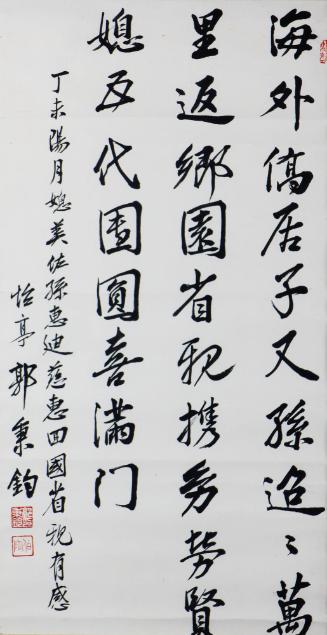 海外僑居子又孫迢々萬
里返鄉園省親携幼勞賢
媳五代團圓喜滿门
丁未陽月媳美佐孫惠迪慈惠回國省親有感
怡亭郭秉鈞